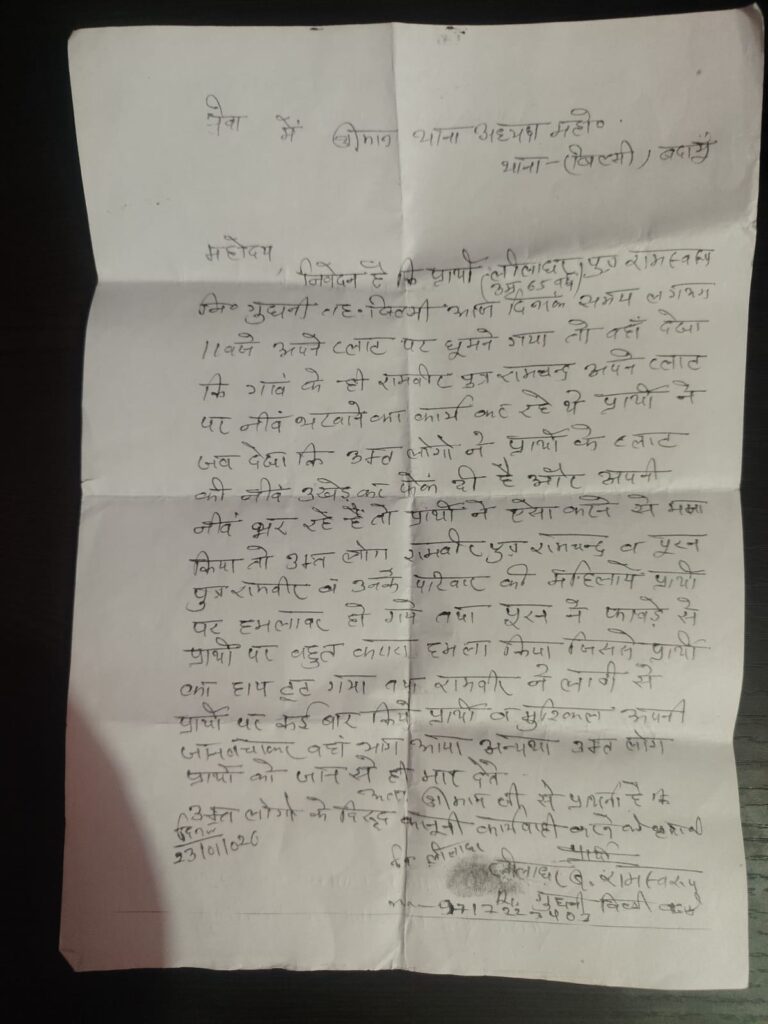 सेवा में श्रीमान थाना अध्यक्ष महो०
थाना-(बिल्सी) बदायूं
महोदय,
निवेदन है कि प्रार्थी लीलाधर पुत्र रामस्वरूप
(उम्र 65 वर्ष)
नि० गुधनी तह. बिल्सी आज दिनांक समय लगभग
11 बजे अपने प्लाट पर घूमने गया तो वहाँ देखा
कि गावं के ही रामवीर पुत्र रामचन्द्र अपने प्लाट
पर नीवं भरवाने का कार्य कर रहे थे प्रार्थी ने
जब देखा कि उक्त लोगो ने प्रार्थी के प्लाट
की नीवं उखेड़ कर फेंक दी है और अपनी
नीवं भर रहें हैं तो प्रार्थी ने ऐसा करने से मना
किया तो उक्त लोग रामवीर पुत्र रामचन्द्र व पूरन
पुत्र रामवीर व उनके परिवार की महिलायें प्रार्थी
पर हमलावर हो गये तथा पूरन ने फावड़े से
प्रार्थी पर बहुत करारा हमला किया जिससे प्रार्थी
का हाथ टूट गया तथा रामवीर ने लाठी से
प्रार्थी पर कई बार किये प्रार्थी व मुश्किल अपनी
जान बचाकर वहां भाग आया अन्यथा उक्त लोग
प्रार्थी को जान से ही मार देते
अतः श्रीमान जी से प्रार्थना है कि
उक्त लोगो के विरुद्ध कानूनी कार्यवाही करने की कृपा करें
दिनांक
23/01/026
लीलाधर
प्रार्थी
लीलाधर S/o रामस्वरूप
नि. गुधनी बिल्सी